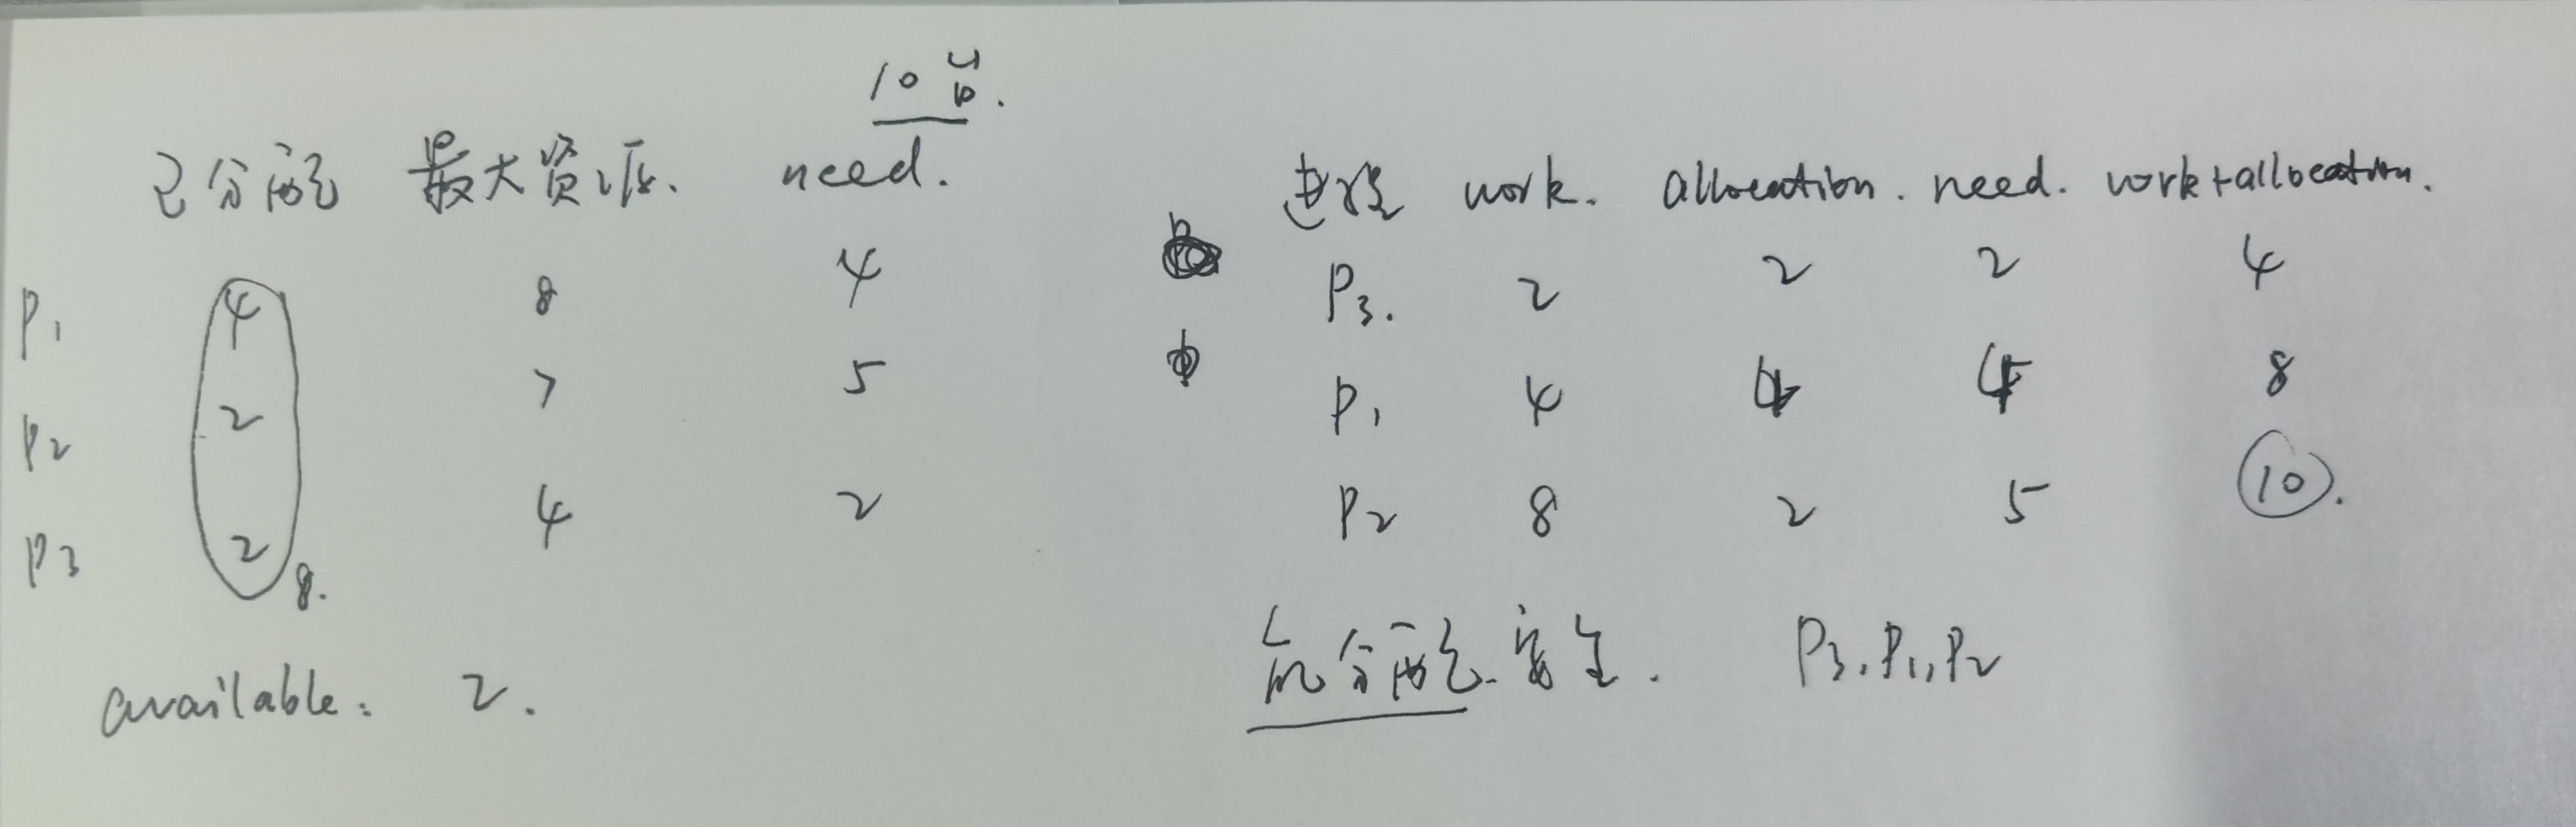 10台.
已分配 最大资源. need.
P1 4 8 4
P2 2 7 5
P3 2 4 2
8.
available: 2.
进程 work. allocation. need. work+allocation.
P3. 2 2 2 4
P1 4 4 4 8
P2 8 2 5 10.
能分配. 安全. P3, P1, P2